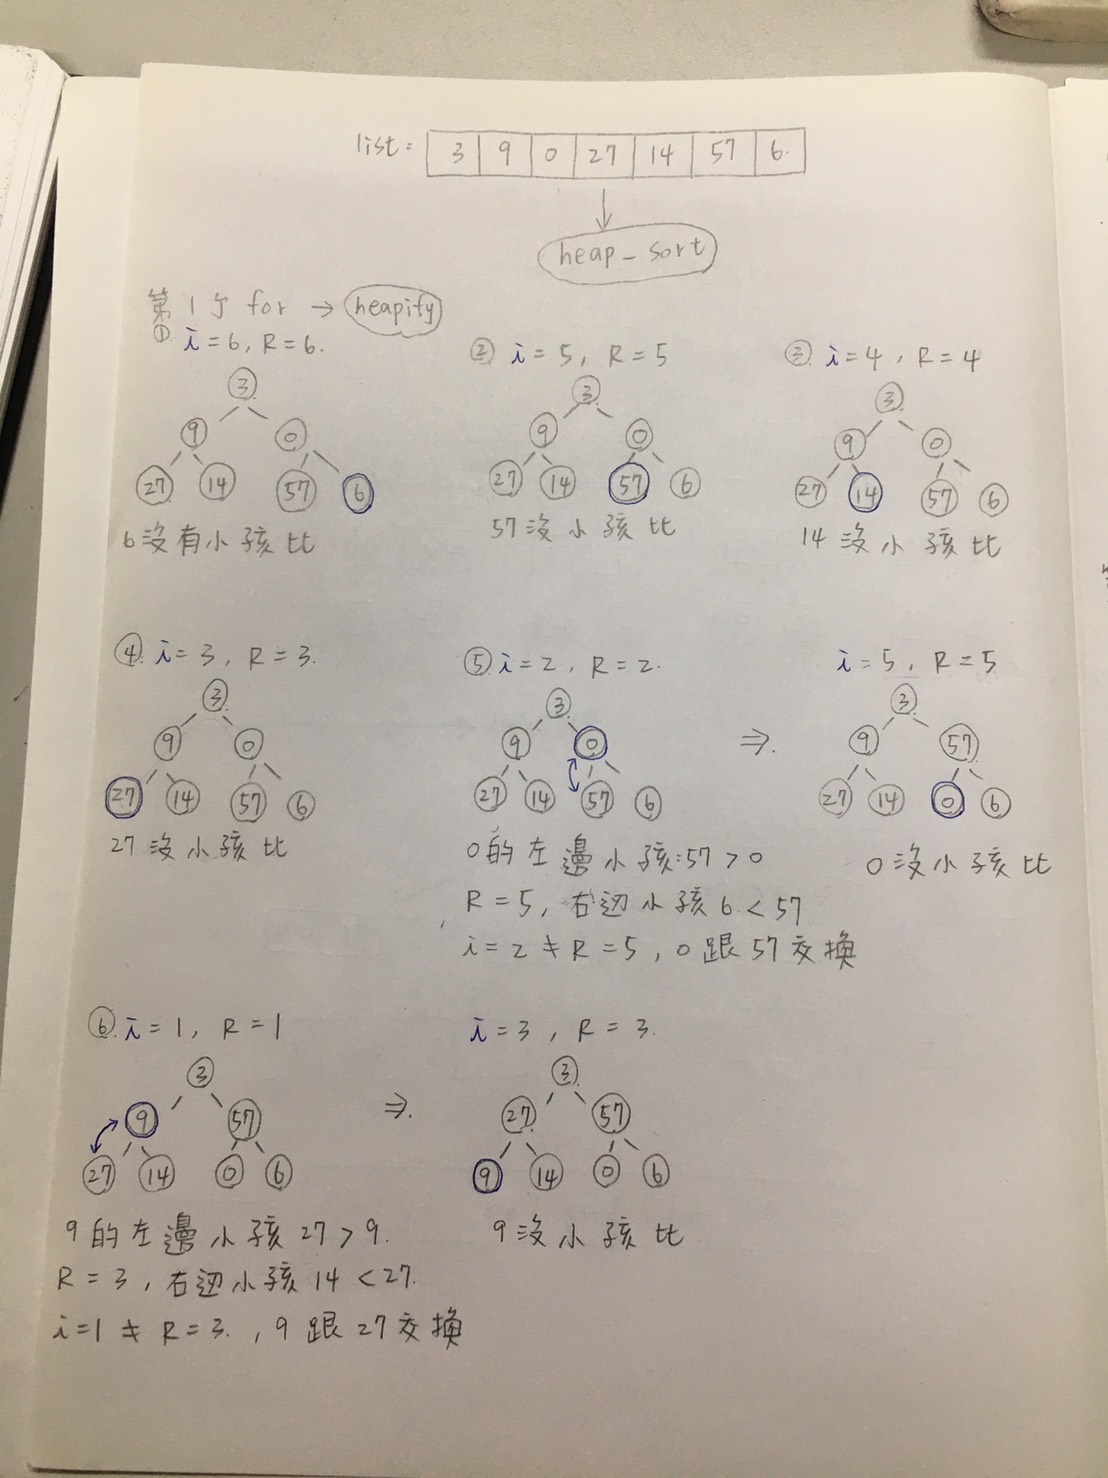 list = 3 9 0 27 14 57 6.
heap_sort
第1个 for → heapify
① i=6, R=6.
3
9 0
27 14 57 6
6沒有小孩比
② i=5, R=5
3
9 0
27 14 57 6
57沒小孩比
③ i=4, R=4
3
9 0
27 14 57 6
14沒小孩比
④ i=3, R=3.
3
9 0
27 14 57 6
27沒小孩比
⑤ i=2, R=2.
3
9 0
27 14 57 6
0的左邊小孩:57>0
R=5, 右边小孩6<57
i=2≠R=5, 0跟57交換
⇒.
i=5, R=5
3
9 57
27 14 0 6
0沒小孩比
⑥ i=1, R=1
3
9 57
27 14 0 6
9的左邊小孩27>9.
R=3, 右边小孩14<27.
i=1≠R=3., 9跟27交換
⇒.
i=3, R=3.
3
27 57
9 14 0 6
9沒小孩比